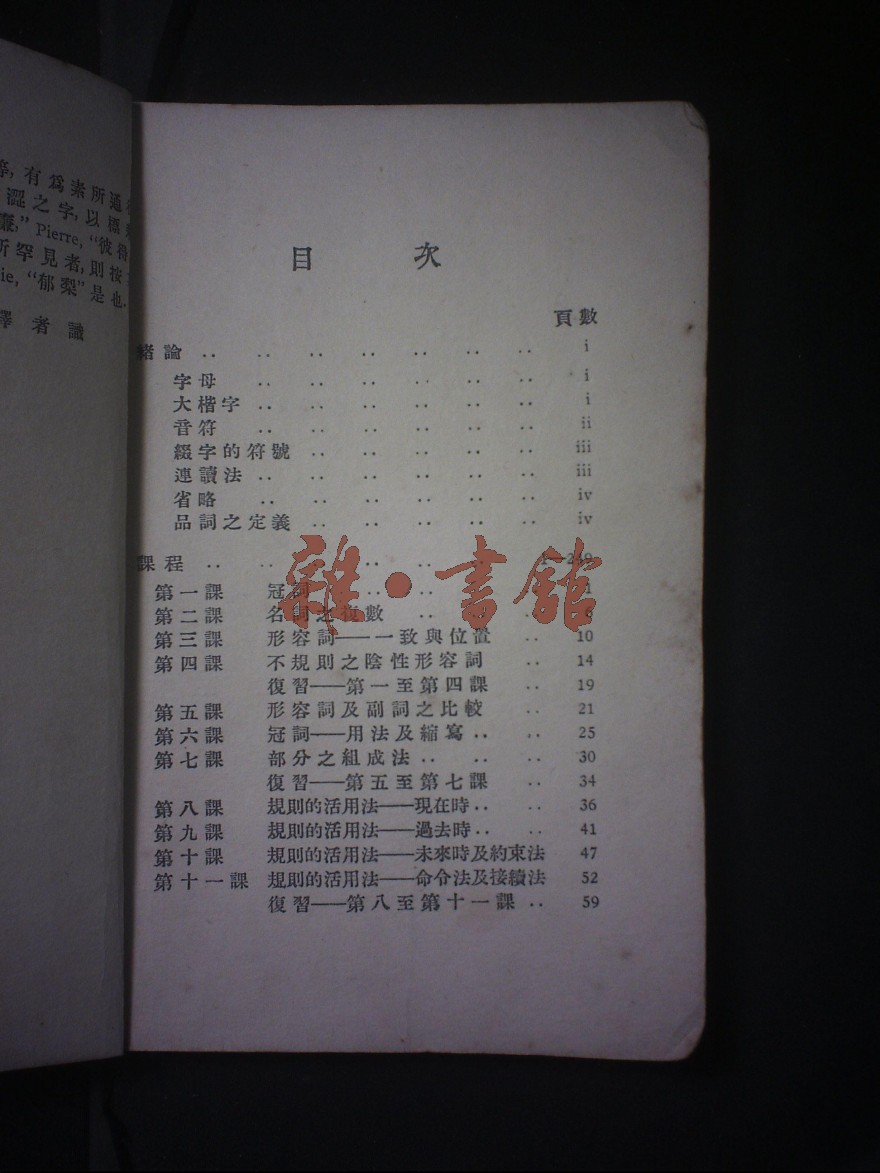 有爲素所通
澀之字,以標
廉,” Pierre, “彼得
所罕見者,則按
ie, “郁梨”是也.
譯者識
目 次
頁數
緒論 .. .. .. .. .. .. .. i
字母 .. .. .. .. .. .. i
大楷字 .. .. .. .. .. .. i
音符 .. .. .. .. .. .. ii
綴字的符號 .. .. .. .. .. iii
連讀法 .. .. .. .. .. .. iii
省略 .. .. .. .. .. .. iv
品詞之定義 .. .. .. .. .. iv
課程 .. .. .. .. .. 1—249
第一課 冠詞 .. .. .. .. 1
第二課 名詞之複數 .. .. .. 6
第三課 形容詞——一致與位置 .. 10
第四課 不規則之陰性形容詞 .. 14
復習——第一至第四課 .. 19
第五課 形容詞及副詞之比較 .. 21
第六課 冠詞——用法及縮寫 .. .. 25
第七課 部分之組成法 .. .. .. 30
復習——第五至第七課 .. 34
第八課 規則的活用法——現在時 .. .. 36
第九課 規則的活用法——過去時 .. .. 41
第十課 規則的活用法——未來時及約束法 47
第十一課 規則的活用法——命令法及接續法 52
復習——第八至第十一課 .. 59
雜·書館